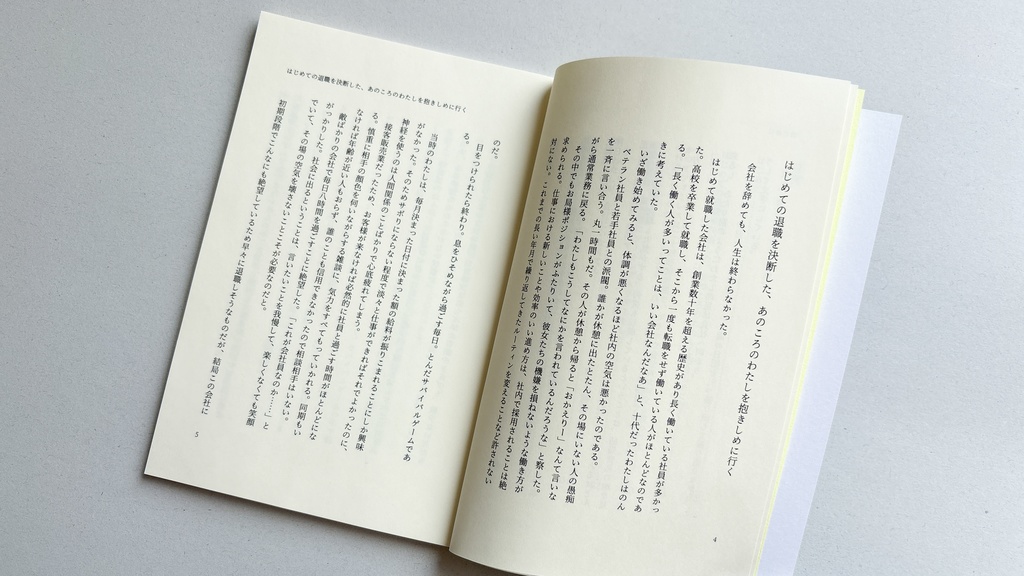 はじめての退職を決断した、あのころのわたしを抱きしめに行く
会社を辞めても、人生は終わらなかった。
はじめて就職した会社は、創業数十年を超える歴史があり長く働いている社員が多かっ
た。高校を卒業して就職し、そこから一度も転職をせず働いている人がほとんどなのであ
る。「長く働く人が多いってことは、いい会社なんだなあ」と、十代だったわたしはのん
きに考えていた。
いざ働き始めてみると、体調が悪くなるほど社内の空気は悪かったのである。
ベテラン社員と若手社員との派閥。誰かが休憩に出たとたん、その場にいない人の愚痴
を一斉に言い合う。丸一時間もだ。その人が休憩から帰ると「おかえり〜」なんて言いな
がら通常業務に戻る。「わたしもこうしてなにかを言われているんだろうな」と察した。
その中でもお局様ポジションがふたりいて、彼女たちの機嫌を損ねないような働き方が
求められる。仕事における新しいことや効率のいい進め方は、社内で採用されることは絶
対にない。これまでの長い年月で繰り返してきたルーティンを変えることなど許されない
4
はじめての退職を決断した、あのころのわたしを抱きしめに行く
のだ。
目をつけられたら終わり。息をひそめながら過ごす毎日。とんだサバイバルゲームであ
る。
当時のわたしは、毎月決まった日付に決まった額の給料が振りこまれることにしか興味
がなかった。そのためサボりにならない程度で淡々と仕事ができればそれでよかったのに、
神経を使うのは人間関係のことばかりで心底疲れてしまう。
接客販売業だったため、お客様が来なければ必然的に社員と過ごす時間がほとんどにな
る。慎重に相手の顔色を伺いながらする雑談に、気力をすべてもっていかれる。同期もい
なければ年齢が近い人もおらず、誰のことも信用できなかったので相談相手はいない。
敵ばかりの会社で毎日八時間を過ごすことに絶望した。「これが会社員なのか……」と
がっかりした。社会に出るということは、言いたいことを我慢して、楽しくなくても笑顔
でいて、その場の空気を壊さないことこそが必要なのだと。
初期段階でこんなにも絶望しているため早々に退職しそうなものだが、結局この会社に
5